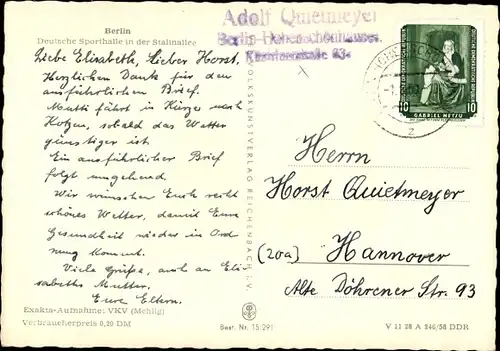 Berlin
Deutsche Sporthalle in der Stalinallee
Liebe Elisabeth, Lieber Horst,
Herzlichen Dank für den
ausführlichen Brief.
Mutti fährt in Kürze nach
sobald das Wetter
günstiger ist
Ein ausführlicher Brief
folgt umgehend.
Wir wünschen Euch recht
schönes Wetter, damit Eure
Gesundheit wieder in Ord
nung kommt.
Viele Grüße, auch an Eli
sabeths Mutter.
Eure Eltern.
Exakta-Aufnahme: VKV (Mehlig)
Verbraucherpreis 0,20 DM
Adolf Quietmeyer
Berlin-Hohenschönhausen
VOLKSKUNSTVERLAG REICHENBACH i. V.
Best. Nr. 15 291
DEUTSCHE DEMOKRATISCHE REPUBLIK
10 10
GABRIEL METSU
Herrn
Horst Quietmeyer
(20a) Hannover
Alte Döhrener Str. 93
V 11 28 A 246/58 DDR